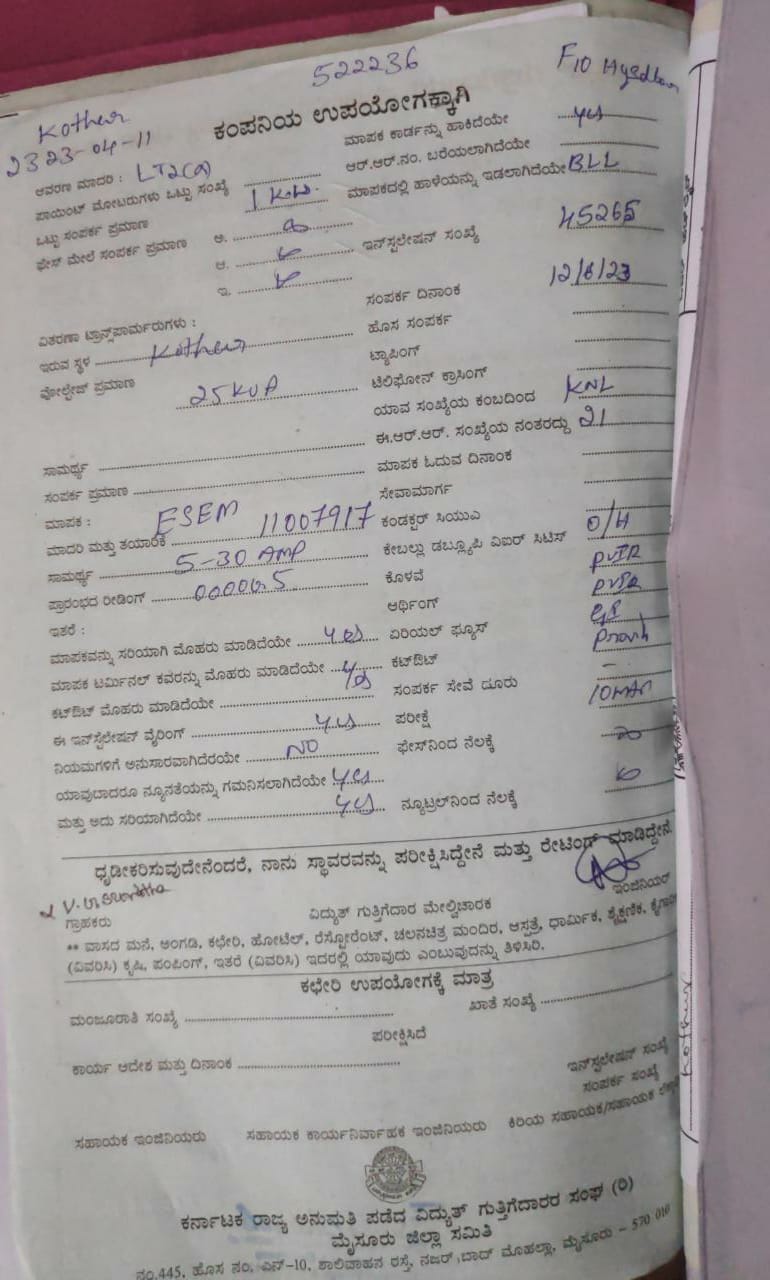 522236
F10
Kother
2323-04-11
ಕಂಪನಿಯ ಉಪಯೋಗಕ್ಕಾಗಿ
ಆವರಣ ಮಾದರಿ : LT2(a)
ಮಾಪಕ ಕಾರ್ಡನ್ನು ಹಾಕಿದೆಯೇ yes
ಪಾಯಿಂಟ್ ಮೋಟರುಗಳು ಒಟ್ಟು ಸಂಖ್ಯೆ
ಆರ್.ಆರ್.ನಂ. ಬರೆಯಲಾಗಿದೆಯೇ
ಒಟ್ಟು ಸಂಪರ್ಕ ಪ್ರಮಾಣ 1 KW.
ಮಾಪಕದಲ್ಲಿ ಹಾಳೆಯನ್ನು ಇಡಲಾಗಿದೆಯೇ BLL
ಫೇಸ್ ಮೇಲೆ ಸಂಪರ್ಕ ಪ್ರಮಾಣ ಅ.
ಆ.
ಇನ್‌ಸ್ಟಲೇಷನ್ ಸಂಖ್ಯೆ 45265
ಇ.
ಸಂಪರ್ಕ ದಿನಾಂಕ 12/6/23
ವಿತರಣಾ ಟ್ರಾನ್ಸ್‌ಪಾರ್ಮರುಗಳು :
ಹೊಸ ಸಂಪರ್ಕ
ಇರುವ ಸ್ಥಳ Kother
ಟ್ಯಾಪಿಂಗ್
ವೋಲ್ಟೇಜ್ ಪ್ರಮಾಣ 25KVA
ಟೆಲಿಫೋನ್ ಕ್ರಾಸಿಂಗ್
ಯಾವ ಸಂಖ್ಯೆಯ ಕಂಬದಿಂದ KNL
ಸಾಮರ್ಥ್ಯ
ಈ.ಆರ್.ಆರ್. ಸಂಖ್ಯೆಯ ನಂತರದ್ದು 21
ಸಂಪರ್ಕ ಪ್ರಮಾಣ
ಮಾಪಕ ಓದುವ ದಿನಾಂಕ
ಮಾಪಕ : ESEM
ಸೇವಾಮಾರ್ಗ
ಮಾದರಿ ಮತ್ತು ತಯಾರಿಕೆ 11007917
ಕಂಡಕ್ಟರ್ ಸಿಯುಎ O/H
ಸಾಮರ್ಥ್ಯ 5-30 AMP
ಕೇಬಲ್ಲು ಡಬ್ಲ್ಯೂಪಿ ವಿಐರ್ ಸಿಟಿಸ್
ಪ್ರಾರಂಭದ ರೀಡಿಂಗ್ 00000.5
ಕೊಳವೆ
ಇತರೆ :
ಆರ್ಥಿಂಗ್
ಮಾಪಕವನ್ನು ಸರಿಯಾಗಿ ಮೊಹರು ಮಾಡಿದೆಯೇ yes
ಏರಿಯಲ್ ಫ್ಯೂಸ್
ಮಾಪಕ ಟರ್ಮಿನಲ್ ಕವರನ್ನು ಮೊಹರು ಮಾಡಿದೆಯೇ yes
ಕಟ್‌ಔಟ್ -
ಕಟ್‌ಔಟ್ ಮೊಹರು ಮಾಡಿದೆಯೇ
ಸಂಪರ್ಕ ಸೇವೆ ದೂರು
ಈ ಇನ್‌ಸ್ಟೆಲೇಷನ್ ವೈರಿಂಗ್ yes
ಪರೀಕ್ಷೆ
ನಿಯಮಗಳಿಗೆ ಅನುಸಾರವಾಗಿದೆರೆಯೇ NO
ಫೇಸ್‌ನಿಂದ ನೆಲಕ್ಕೆ
ಯಾವುದಾದರೂ ನ್ಯೂನತೆಯನ್ನು ಗಮನಿಸಲಾಗಿದೆಯೇ yes
ಮತ್ತು ಅದು ಸರಿಯಾಗಿದೆಯೇ yes
ನ್ಯೂಟ್ರಲ್‌ನಿಂದ ನೆಲಕ್ಕೆ
ಧೃಡೀಕರಿಸುವುದೇನೆಂದರೆ, ನಾನು ಸ್ಥಾವರವನ್ನು ಪರೀಕ್ಷಿಸಿದ್ದೇನೆ ಮತ್ತು ರೇಟಿಂಗ್ ಮಾಡಿದ್ದೇನೆ
ಗ್ರಾಹಕರು
ವಿದ್ಯುತ್ ಗುತ್ತಿಗೆದಾರ ಮೇಲ್ವಿಚಾರಕ
ಇಂಜಿನಿಯರ್
** ವಾಸದ ಮನೆ, ಅಂಗಡಿ, ಕಛೇರಿ, ಹೋಟೆಲ್, ರೆಸ್ಟೋರೆಂಟ್, ಚಲನಚಿತ್ರ ಮಂದಿರ, ಆಸ್ಪತ್ರೆ, ಧಾರ್ಮಿಕ, ಶೈಕ್ಷಣಿಕ,
(ವಿವರಿಸಿ) ಕೃಷಿ, ಪಂಪಿಂಗ್, ಇತರೆ (ವಿವರಿಸಿ) ಇದರಲ್ಲಿ ಯಾವುದು ಎಂಬುವುದನ್ನು ತಿಳಿಸಿರಿ.
ಕಛೇರಿ ಉಪಯೋಗಕ್ಕೆ ಮಾತ್ರ
ಮಂಜೂರಾತಿ ಸಂಖ್ಯೆ
ಖಾತೆ ಸಂಖ್ಯೆ
ಪರೀಕ್ಷಿಸಿದೆ
ಕಾರ್ಯ ಆದೇಶ ಮತ್ತು ದಿನಾಂಕ
ಇನ್‌ಸ್ಟಲೇಷನ್ ಸಂಖ್ಯೆ
ಸಂಪರ್ಕ ಸಂಖ್ಯೆ
ಸಹಾಯಕ ಇಂಜಿನಿಯರು
ಸಹಾಯಕ ಕಾರ್ಯನಿರ್ವಾಹಕ ಇಂಜಿನಿಯರು
ಕಿರಿಯ ಸಹಾಯಕ/ಸಹಾಯಕ
ಕರ್ನಾಟಕ ರಾಜ್ಯ ಅನುಮತಿ ಪಡೆದ ವಿದ್ಯುತ್ ಗುತ್ತಿಗೆದಾರರ ಸಂಘ (ರಿ)
ಮೈಸೂರು ಜಿಲ್ಲಾ ಸಮಿತಿ
ನಂ.445, ಹೊಸ ನಂ. ಎನ್-10, ಶಾಲಿವಾಹನ ರಸ್ತೆ, ನಜರ್‌ಬಾದ್ ಮೊಹಲ್ಲಾ, ಮೈಸೂರು - 570 010
Kother